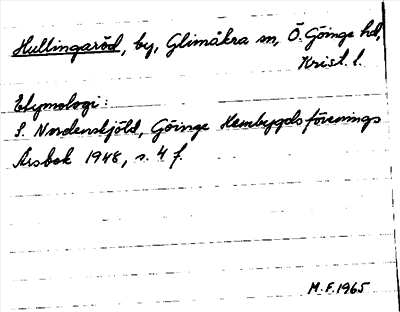 Hullingaröd, by, Glimåkra sn, Ö. Göinge hd,
Krist. l.
Etymologi:
S. Nordenskjöld, Göinge Hembygdsförenings
Årsbok 1948, s. 4 f.
M.F. 1965